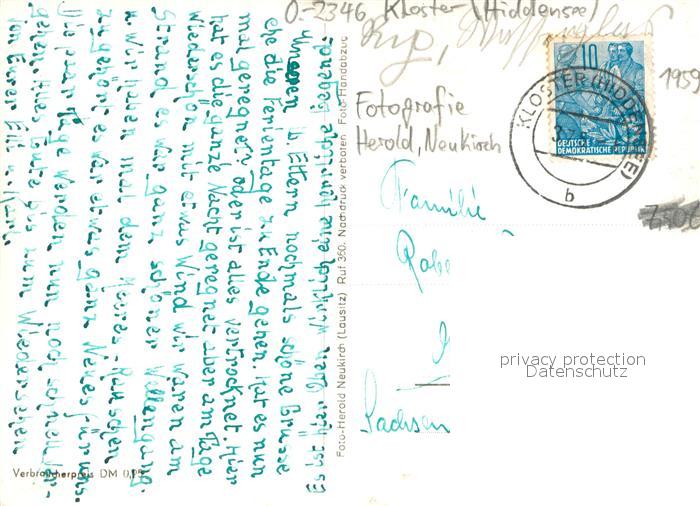 O-2346 Kloster (Hiddensee)
1959
Fotografie
Herold, Neukirch
KLOSTER (HIDDENSEE)
b
10
DEUTSCHE
DEMOKRATISCHE REPUBLIK
Familie
Sachsen
privacy protection
Datenschutz
u. Eltern nochmals schöne Grüsse
ehe die Ferientage zu Ende gehen. Hat es nun
mal geregnet oder ist alles vertrocknet. Hier
hat es die ganze Nacht geregnet aber am Tage
wiederschön mit etwas Wind wir waren am
Strand, es war ganz schöner Wellengang.
u. wir haben mal dem Meeres-Rauschen
zugehört es war etwas ganz Neues für uns.
Die paar Tage werden nun noch schnell ver-
gehen. Alles Gute bis zum Wiedersehen
von Eurer
Foto-Herold Neukirch (Lausitz) Ruf 360. Nachdruck verboten Foto-Handabzug
Verbraucherpreis DM